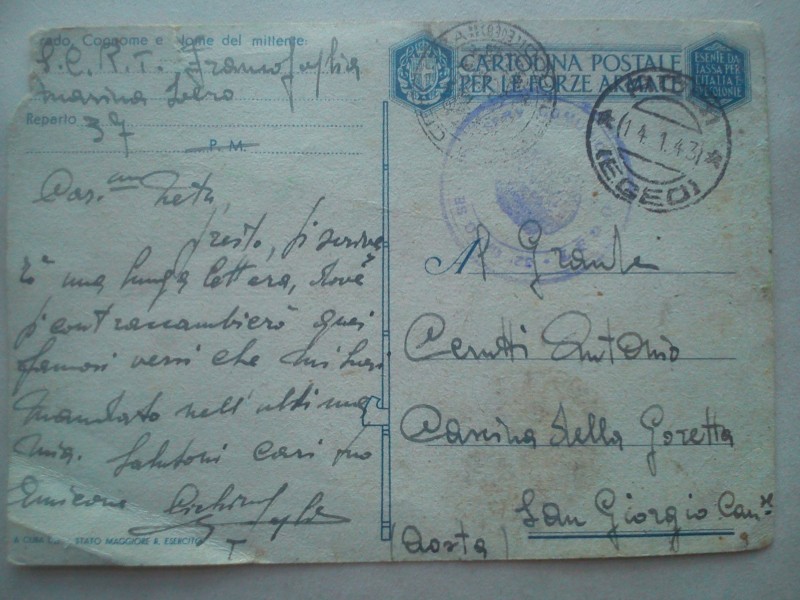 Grado, Cognome e Nome del mittente:
S.C.R.T. Francofoglia
Marina Lero
Reparto 37
P. M.
Car.mo Neta,
presto, ti scriver
ò una lunga lettera, dove
ti contraccambierò quei
famosi versi che mi hai
mandato nell'ultima
mia. Salutoni cari tuo
Amicone
A CURA STATO MAGGIORE R. ESERCITO
CARTOLINA POSTALE
PER LE FORZE ARMATE
ESENTE DA
TASSA PER
L'ITALIA E
LE COLONIE
14.1.43
(EGEO)
Al Grande
Cerutti Antonio
Cascina della Goretta
San Giorgio Can.se
(Aosta)